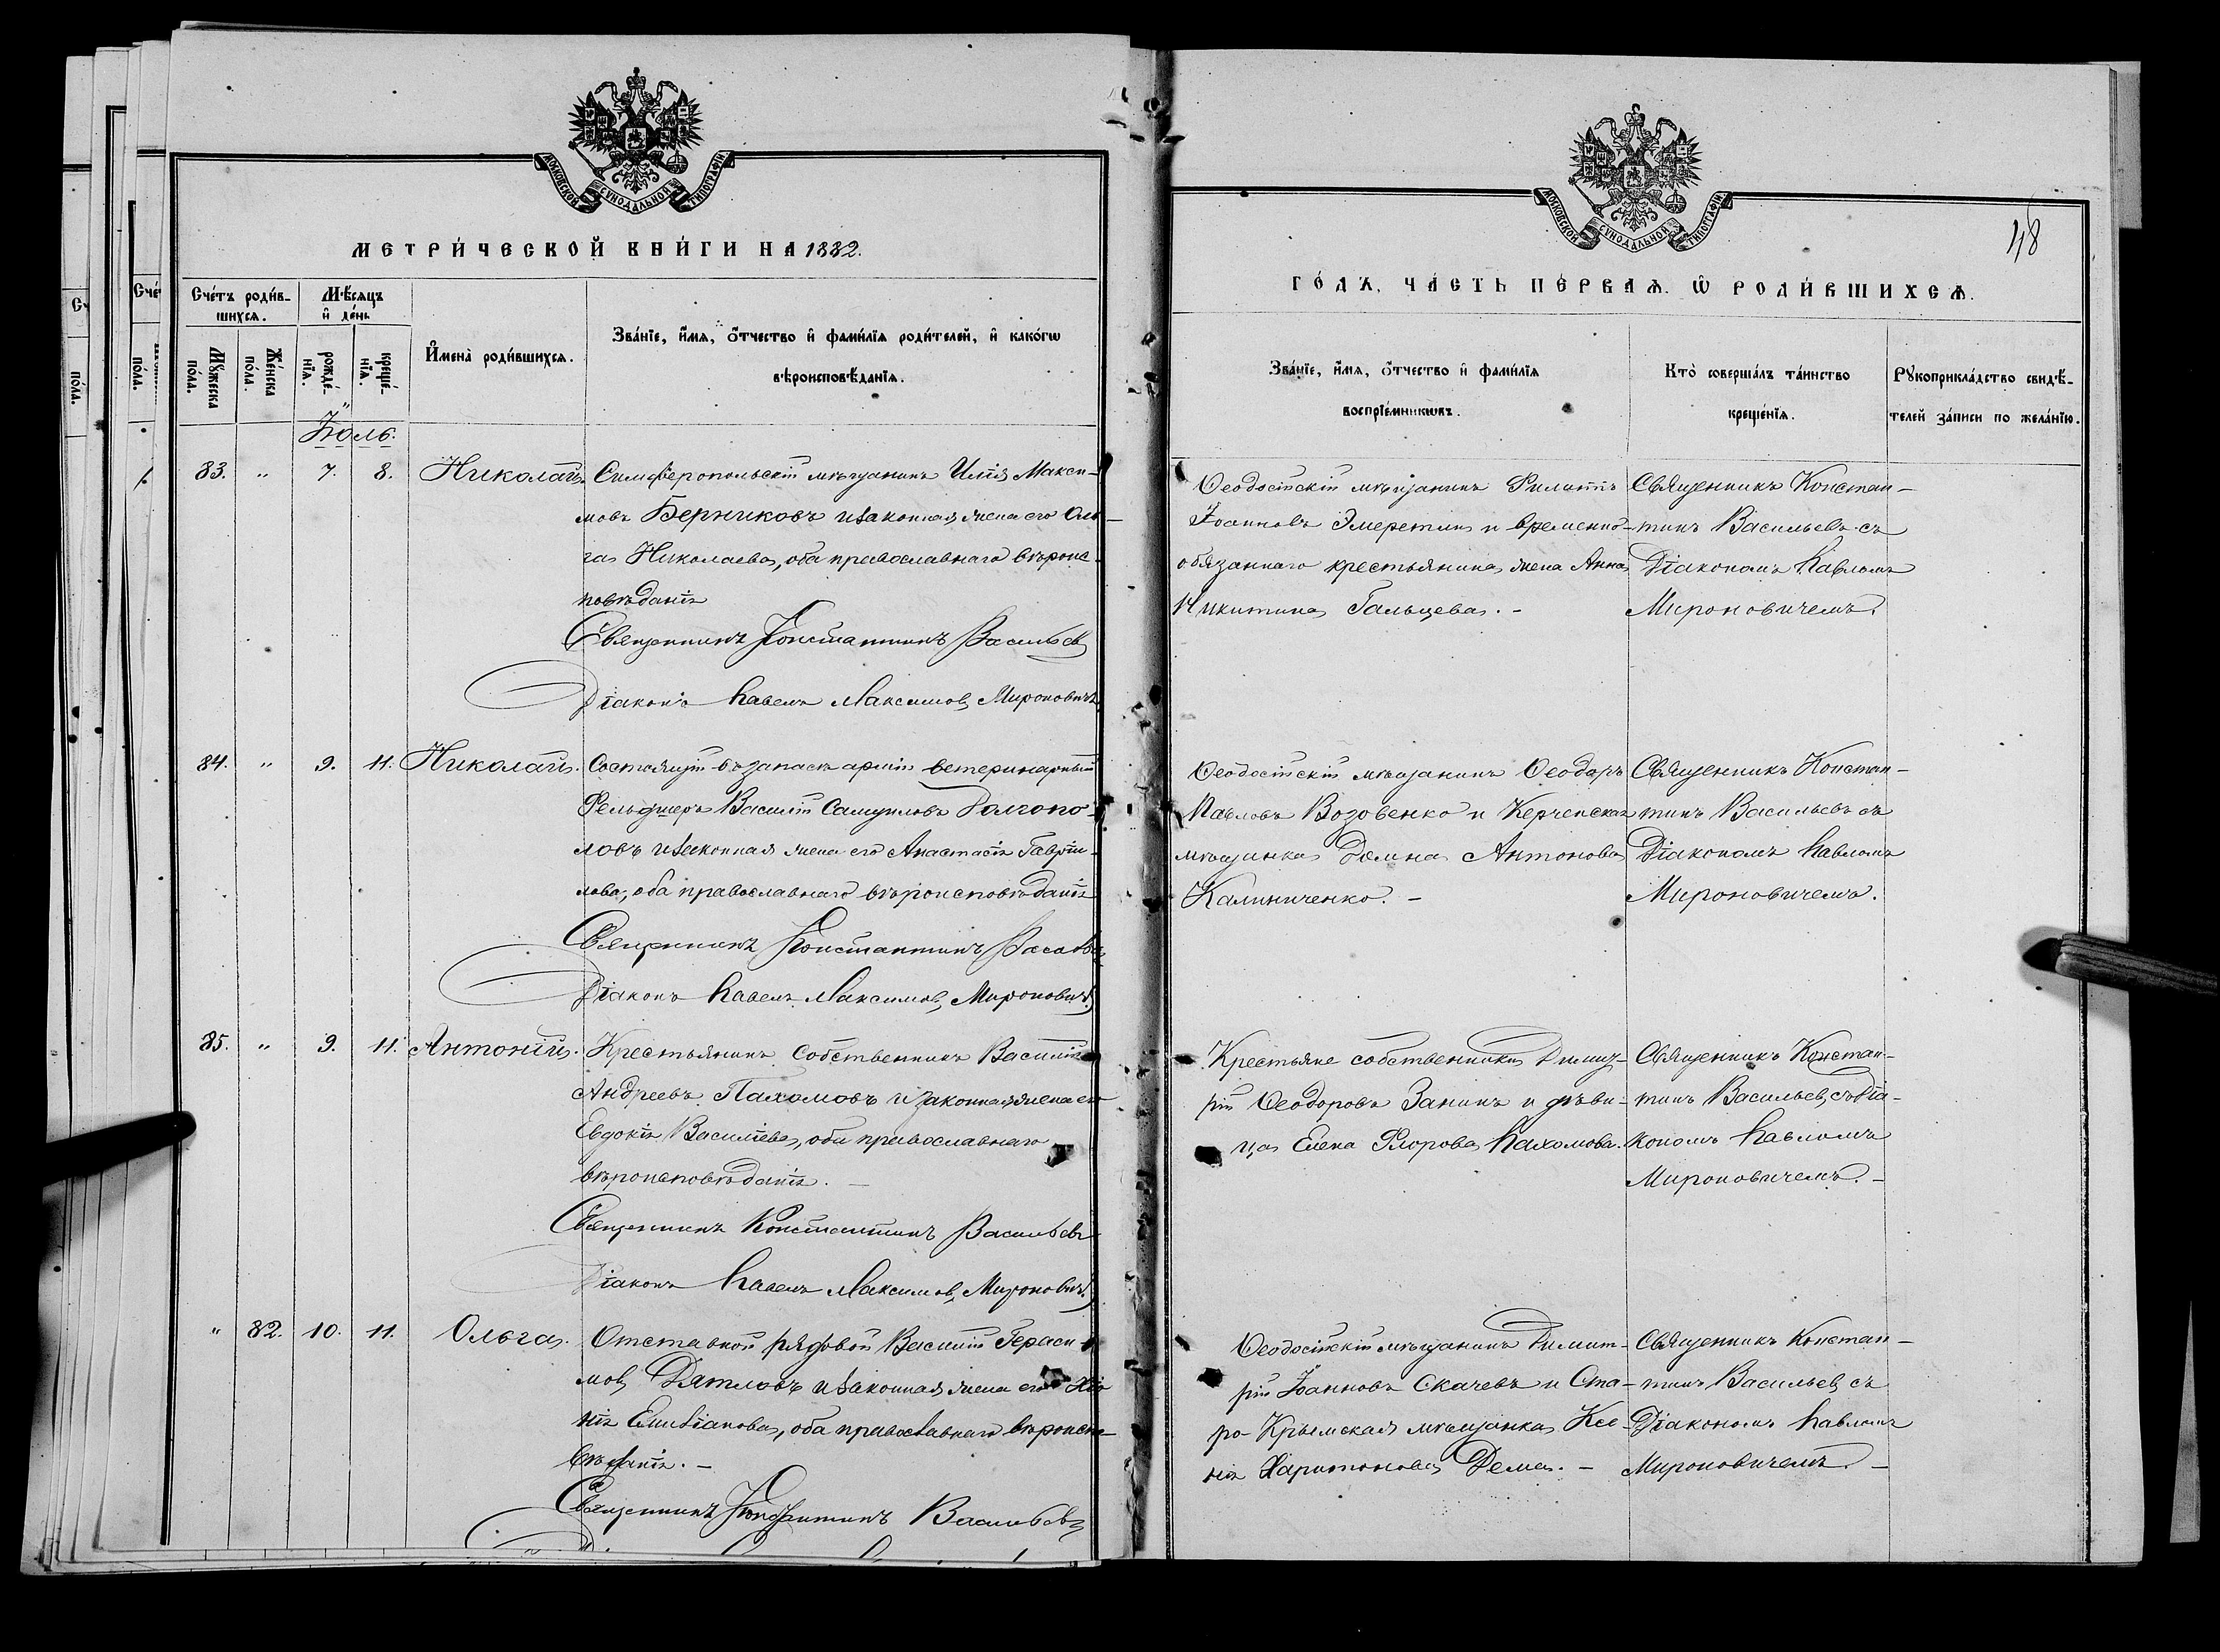 МОСКОВСКОЙ СУНОДАЛЬНОЙ ТИПОГРАФІИ
МЕТРИ́ЧЕСКОЙ КНИ́ГИ НА 1882.
Сче́тъ роди́в-
шихся.
Мѣ́сяцъ
и҆ де́нь
Мꙋ́жеска
по́ла.
Же́нска
по́ла.
рожде́-
нїѧ.
креще́-
нїѧ.
И҆мена̀ роди́вшихсѧ.
Зва́нїе, и҆́мѧ, ѻ҆́тчество и҆ фами́лїѧ роди́телей, и҆ како́гѡ
вѣроисповѣ́данїѧ.
Іюль.
83. " 7. 8. Николай.
Симферопольскій мѣщанинъ Илія Макси-
мовъ Берниковъ и законная жена его Оль-
га Николаева, оба православнаго вѣроис-
повѣданія
Священникъ Константинъ Васильевъ
Діаконъ Павелъ Максимовъ Мироновичъ
84. " 9. 11. Николай.
Состоящій въ запасѣ арміи ветеринарный
Фельдшеръ Василій Самуиловъ Долгопо-
ловъ и законная жена его Анастасія Гаврі-
лова, оба православнаго вѣроисповѣданія
Священникъ Константинъ Васильевъ
Діаконъ Павелъ Максимовъ Мироновичъ
85. " 9. 11. Антоній.
Крестьянинъ собственникъ Василій
Андреевъ Пахомовъ и законная жена его
Евдокія Василіева, оба православнаго
вѣроисповѣданія. –
Священникъ Константинъ Васильевъ
Діаконъ Павелъ Максимовъ Мироновичъ
" 82. 10. 11. Ольга.
Отставной рядовой Василій Гераси-
мовъ Дятловъ и законная жена его
Емиліанова, оба православнаго вѣроиспо-
вѣданія. –
Священникъ Константинъ Васильевъ
МОСКОВСКОЙ СУНОДАЛЬНОЙ ТИПОГРАФІИ
48
ГО́ДЪ, ЧА́СТЬ ПЕ́РВАѦ. Ѡ҆ РОДИ́ВШИХСѦ.
Зва́нїе, и҆́мѧ, ѻ҆́тчество и҆ фами́лїѧ
воспрїе́мникѡвъ.
Кто̀ соверша́лъ та́инство
креще́нїѧ.
Рꙋкоприкла́дство свидѣ́-
телей за́писи по жела́нїю.
Ѳеодосійскій мѣщанинъ Филиппъ
Іоанновъ Эмеретли и временно-
обязаннаго крестьянина жена Анна
Никитина Гальцева. –
Священникъ Констан-
тинъ Васильевъ съ
Діакономъ Павломъ
Мироновичемъ.
Ѳеодосійскій мѣщанинъ Ѳеодоръ
Павловъ Возовенко и Керченская
мѣщанка Домна Антонова
Калиниченко. –
Священникъ Констан-
тинъ Васильевъ съ
Діакономъ Павломъ
Мироновичемъ.
Крестьяне собственники Димит-
рій Ѳеодоровъ Занинъ и дѣви-
ца Елена Флорова Пахомова.
Священникъ Констан-
тинъ Васильевъ, съ Діа-
кономъ Павломъ
Мироновичемъ. –
Ѳеодосійскій мѣщанинъ Димит-
рій Іоанновъ Скачевъ и Ста-
ро-Крымская мѣщанка Ксе-
нія Харитонова Дема. –
Священникъ Констан-
тинъ Васильевъ съ
Діакономъ Павломъ
Мироновичемъ. –